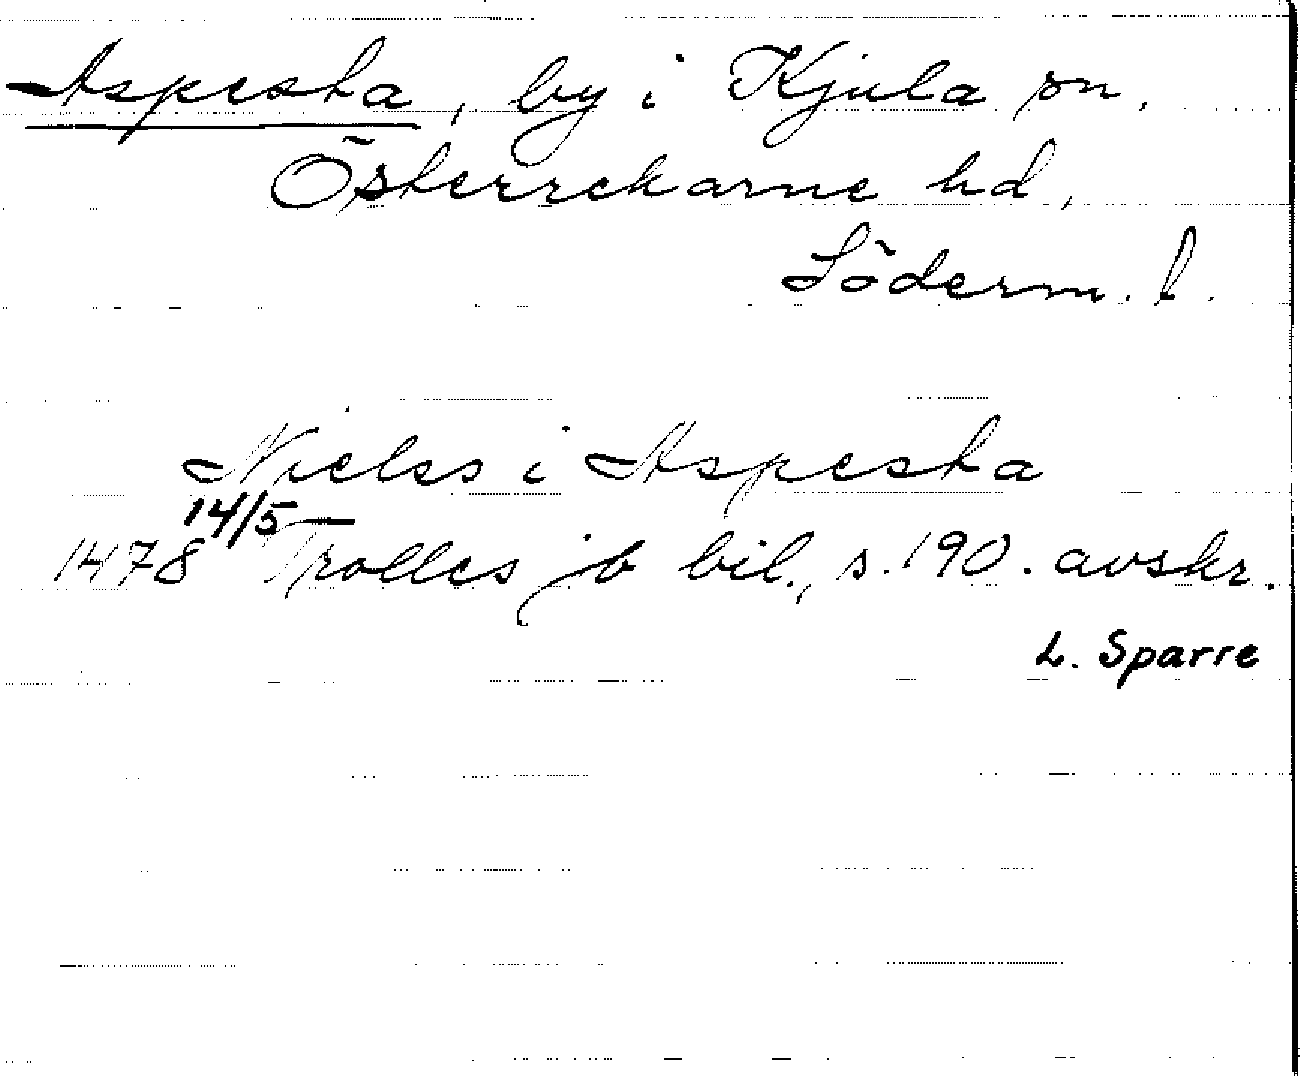 Aspesta, by i Kjula sn,
Österrekarne hd,
Söderm. l.
Nielss i Aspesta
14/5
1478 Trolles jb bil., s. 190. avskr.
L. Sparre